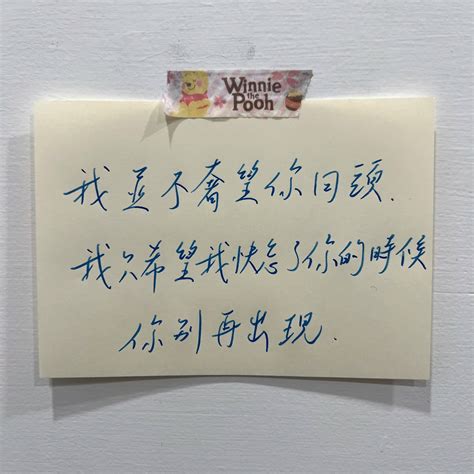 Winnie
the
Pooh
我並不奢望你回頭.
我只希望我快忘了你的時候
你別再出現.